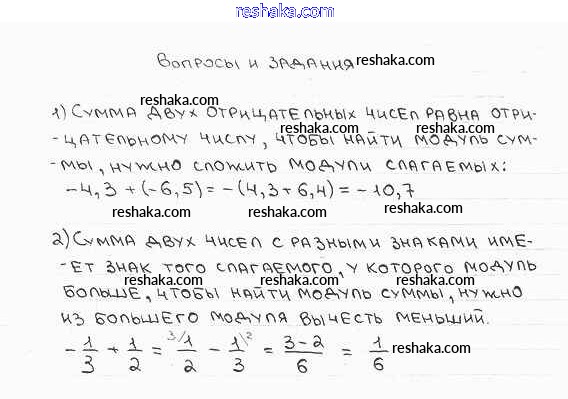 reshaka.com
Вопросы и задания reshaka.com
reshaka.com reshaka.com
1) Сумма двух отрицательных чисел равна отри-
-цательному числу, чтобы найти модуль сум-
reshaka.com reshaka.com reshaka.com
-мы, нужно сложить модули слагаемых:
-4,3 + (-6,5) = -(4,3 + 6,4) = -10,7
reshaka.com reshaka.com
2) Сумма двух чисел с разными знаками име-
-ет знак того слагаемого, у которого модуль
reshaka.com reshaka.com reshaka.com
больше, чтобы найти модуль суммы, нужно
из большего модуля вычесть меньший.
-1/3 + 1/2 = 3/ 1/2 - 1/3 \2 = 3-2/6 = 1/6 reshaka.com
reshaka.com reshaka.com